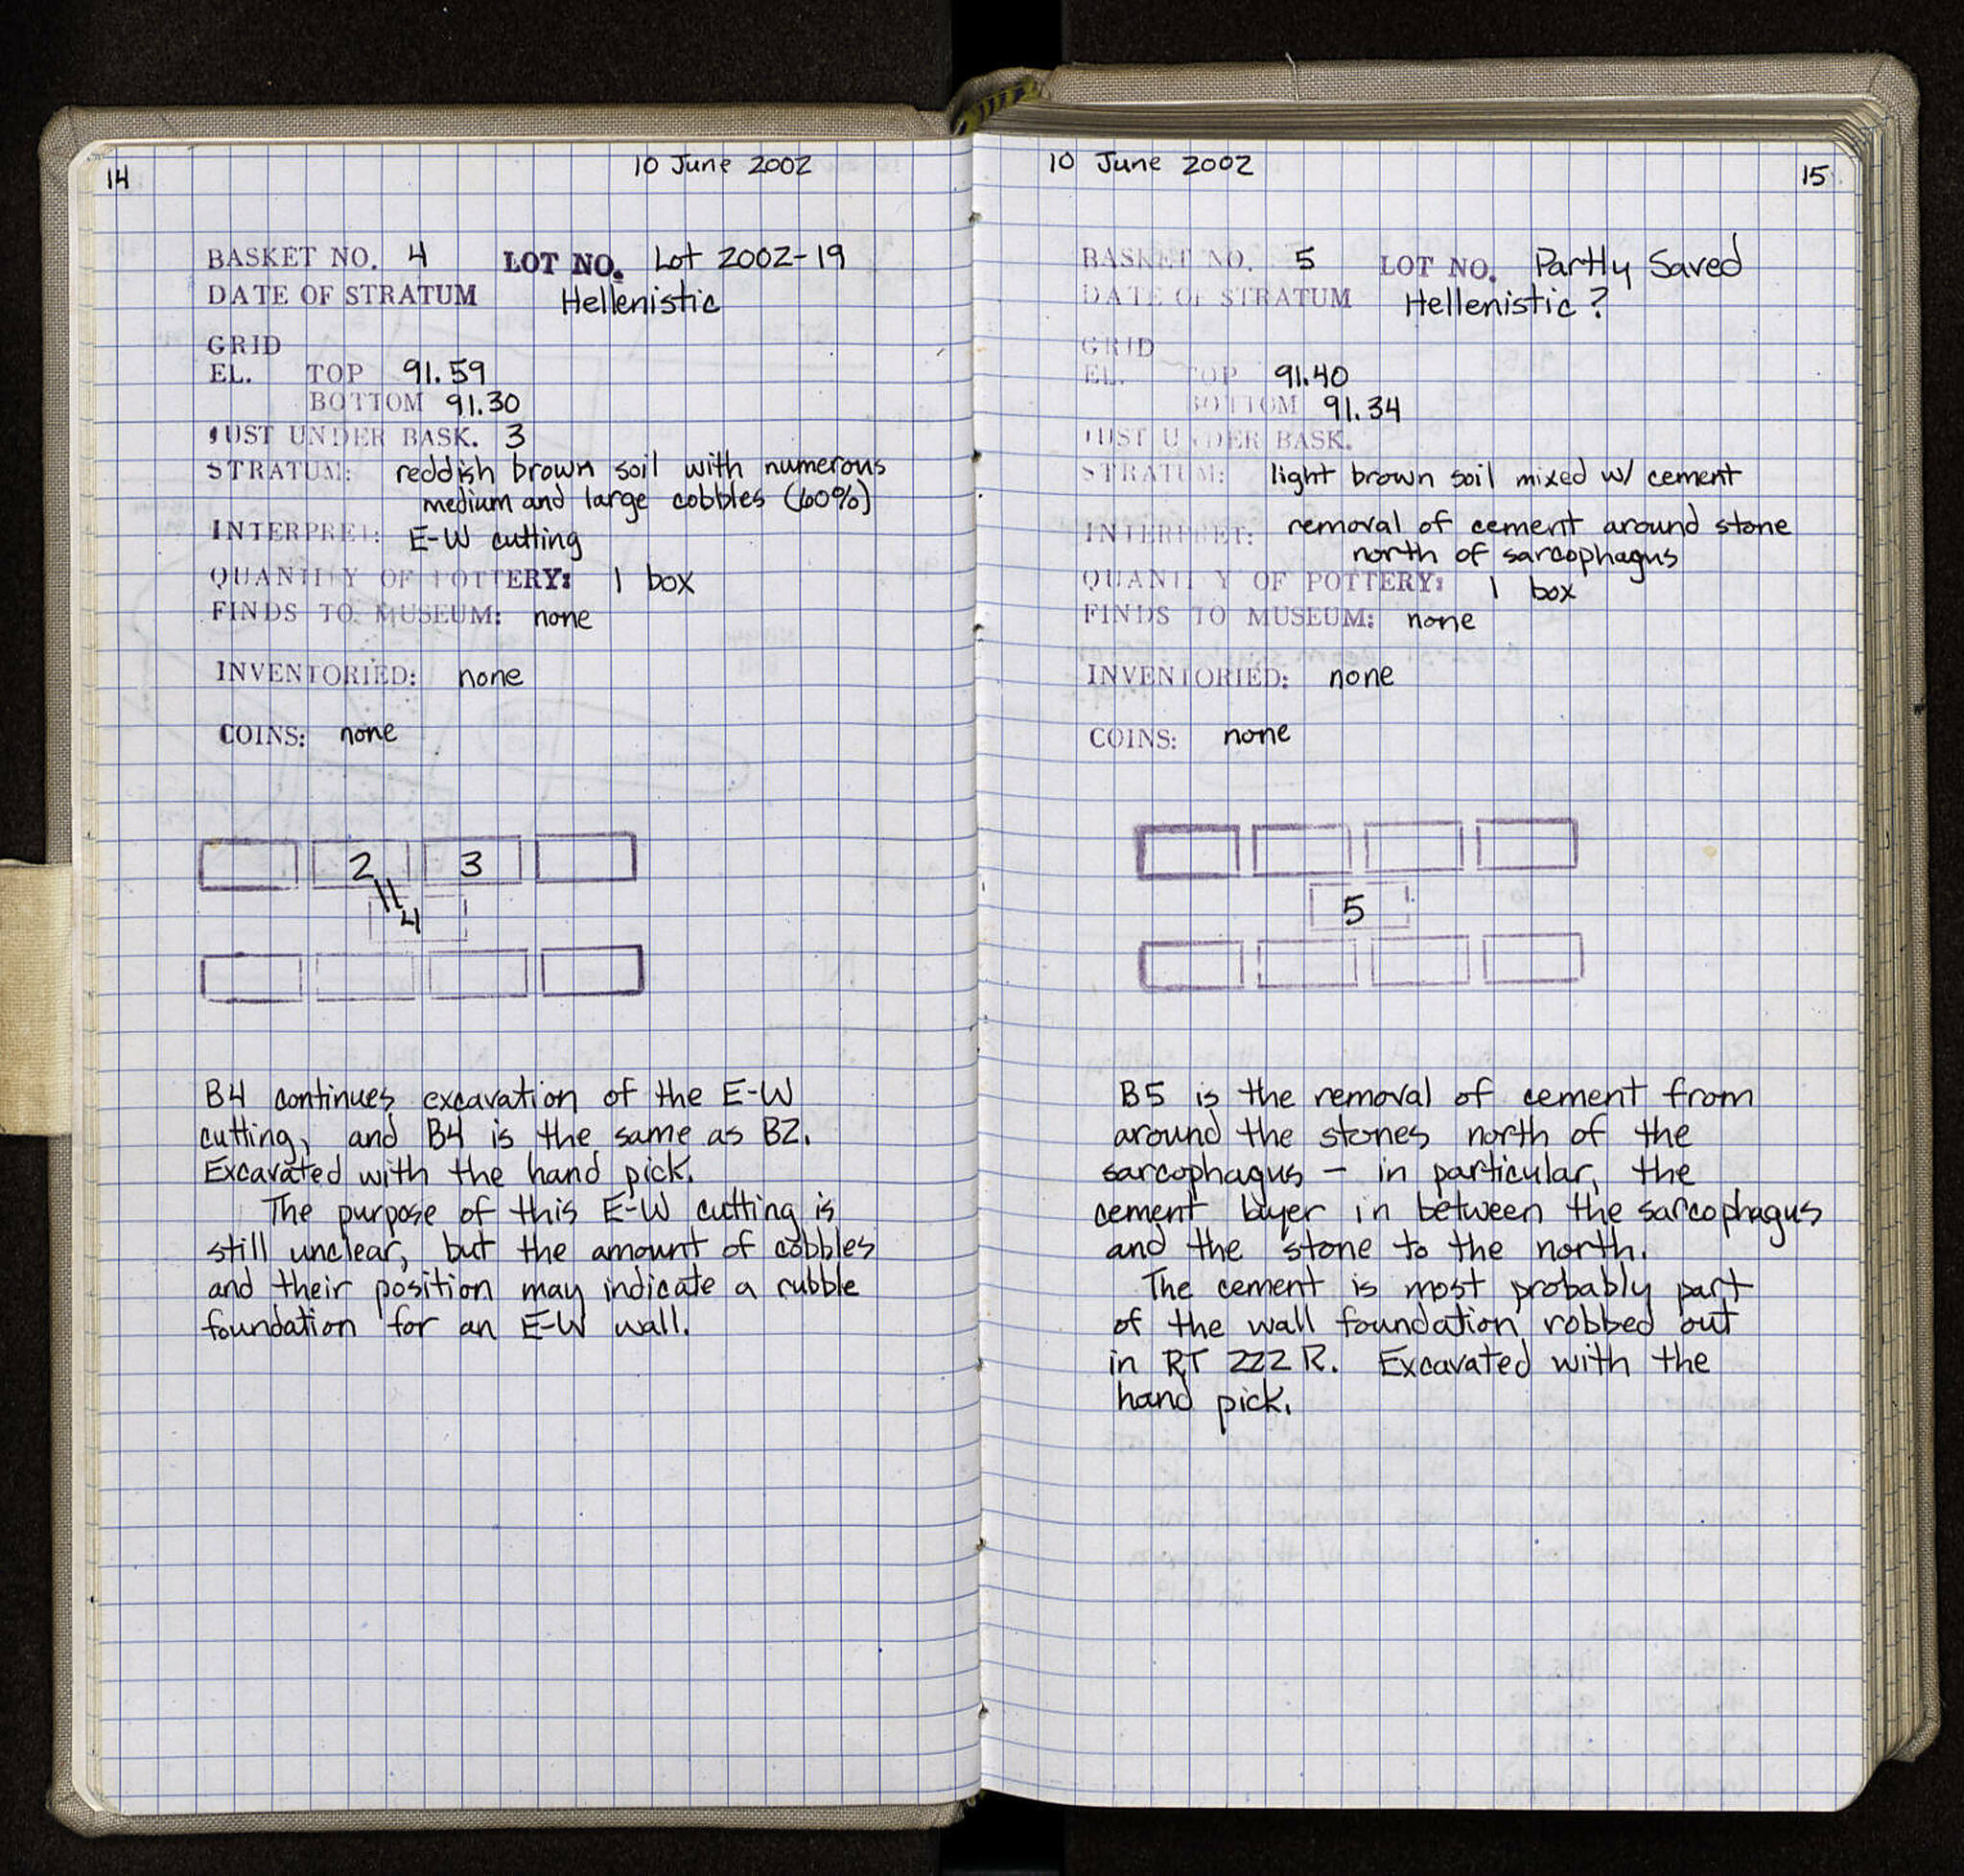 14
10 June 2002
BASKET NO. 4 LOT NO. Lot 2002-19
DATE OF STRATUM Hellenistic
GRID
EL. TOP 91.59
BOTTOM 91.30
JUST UNDER BASK. 3
STRATUM: reddish brown soil with numerous
medium and large cobbles (60%)
INTERPRET: E-W cutting
QUANTITY OF POTTERY: 1 box
FINDS TO MUSEUM: none
INVENTORIED: none
COINS: none
2 3
4
B4 continues excavation of the E-W
cutting, and B4 is the same as B2.
Excavated with the hand pick.
The purpose of this E-W cutting is
still unclear, but the amount of cobbles
and their position may indicate a rubble
foundation for an E-W wall.
10 June 2002
15
BASKET NO. 5 LOT NO. Partly Saved
DATE OF STRATUM Hellenistic?
GRID
EL. TOP 91.40
BOTTOM 91.34
JUST UNDER BASK.
STRATUM: light brown soil mixed w/ cement
INTERPRET: removal of cement around stone
north of sarcophagus
QUANTITY OF POTTERY: 1 box
FINDS TO MUSEUM: none
INVENTORIED: none
COINS: none
5
B5 is the removal of cement from
around the stones north of the
sarcophagus – in particular, the
cement layer in between the sarcophagus
and the stone to the north.
The cement is most probably part
of the wall foundation robbed out
in RT 222 R. Excavated with the
hand pick.